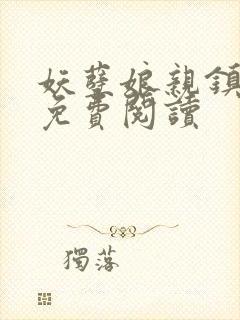 妖孽娘親鎮
免費閱讀
獨落